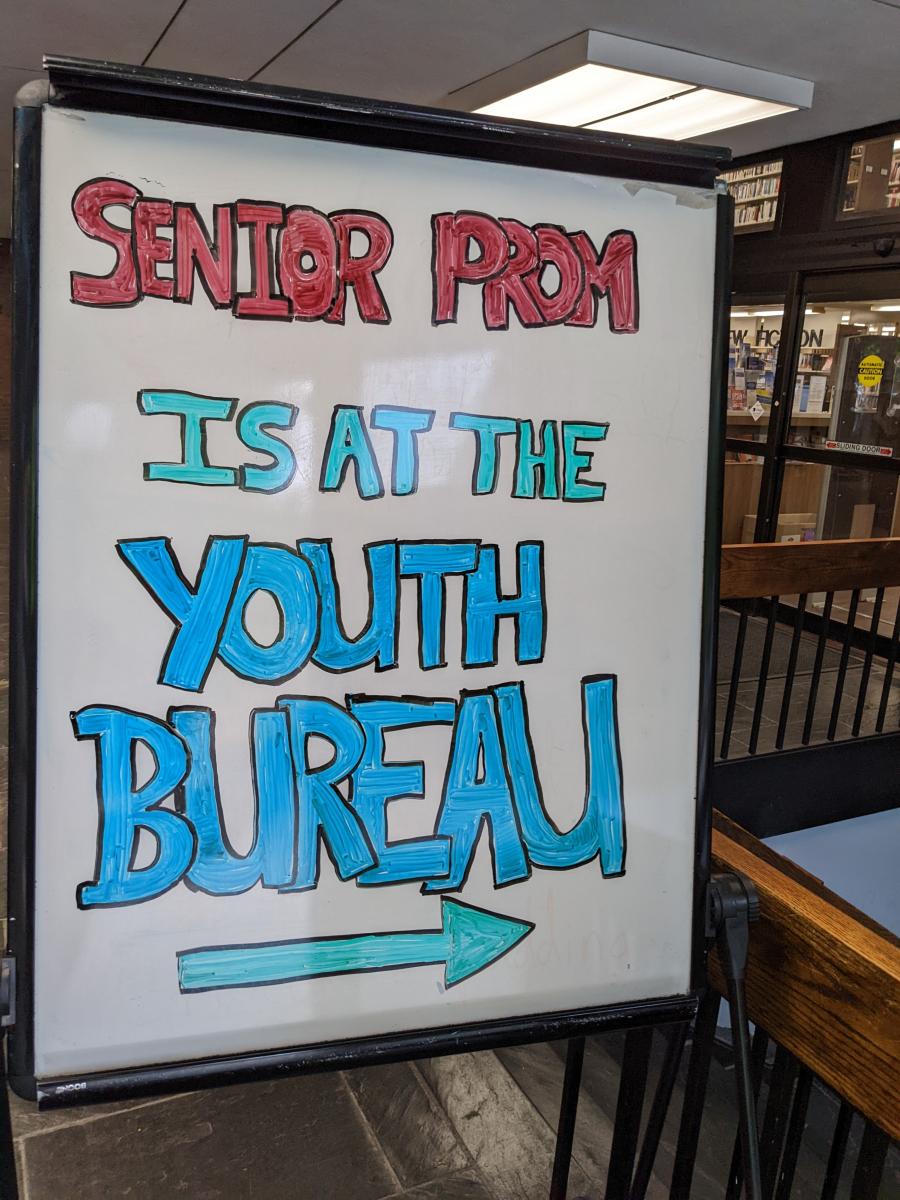 SENIOR PROM
IS AT THE
YOUTH
BUREAU
EW FICTION
AUTOMATIC
CAUTION
DOOR
SLIDING DOOR